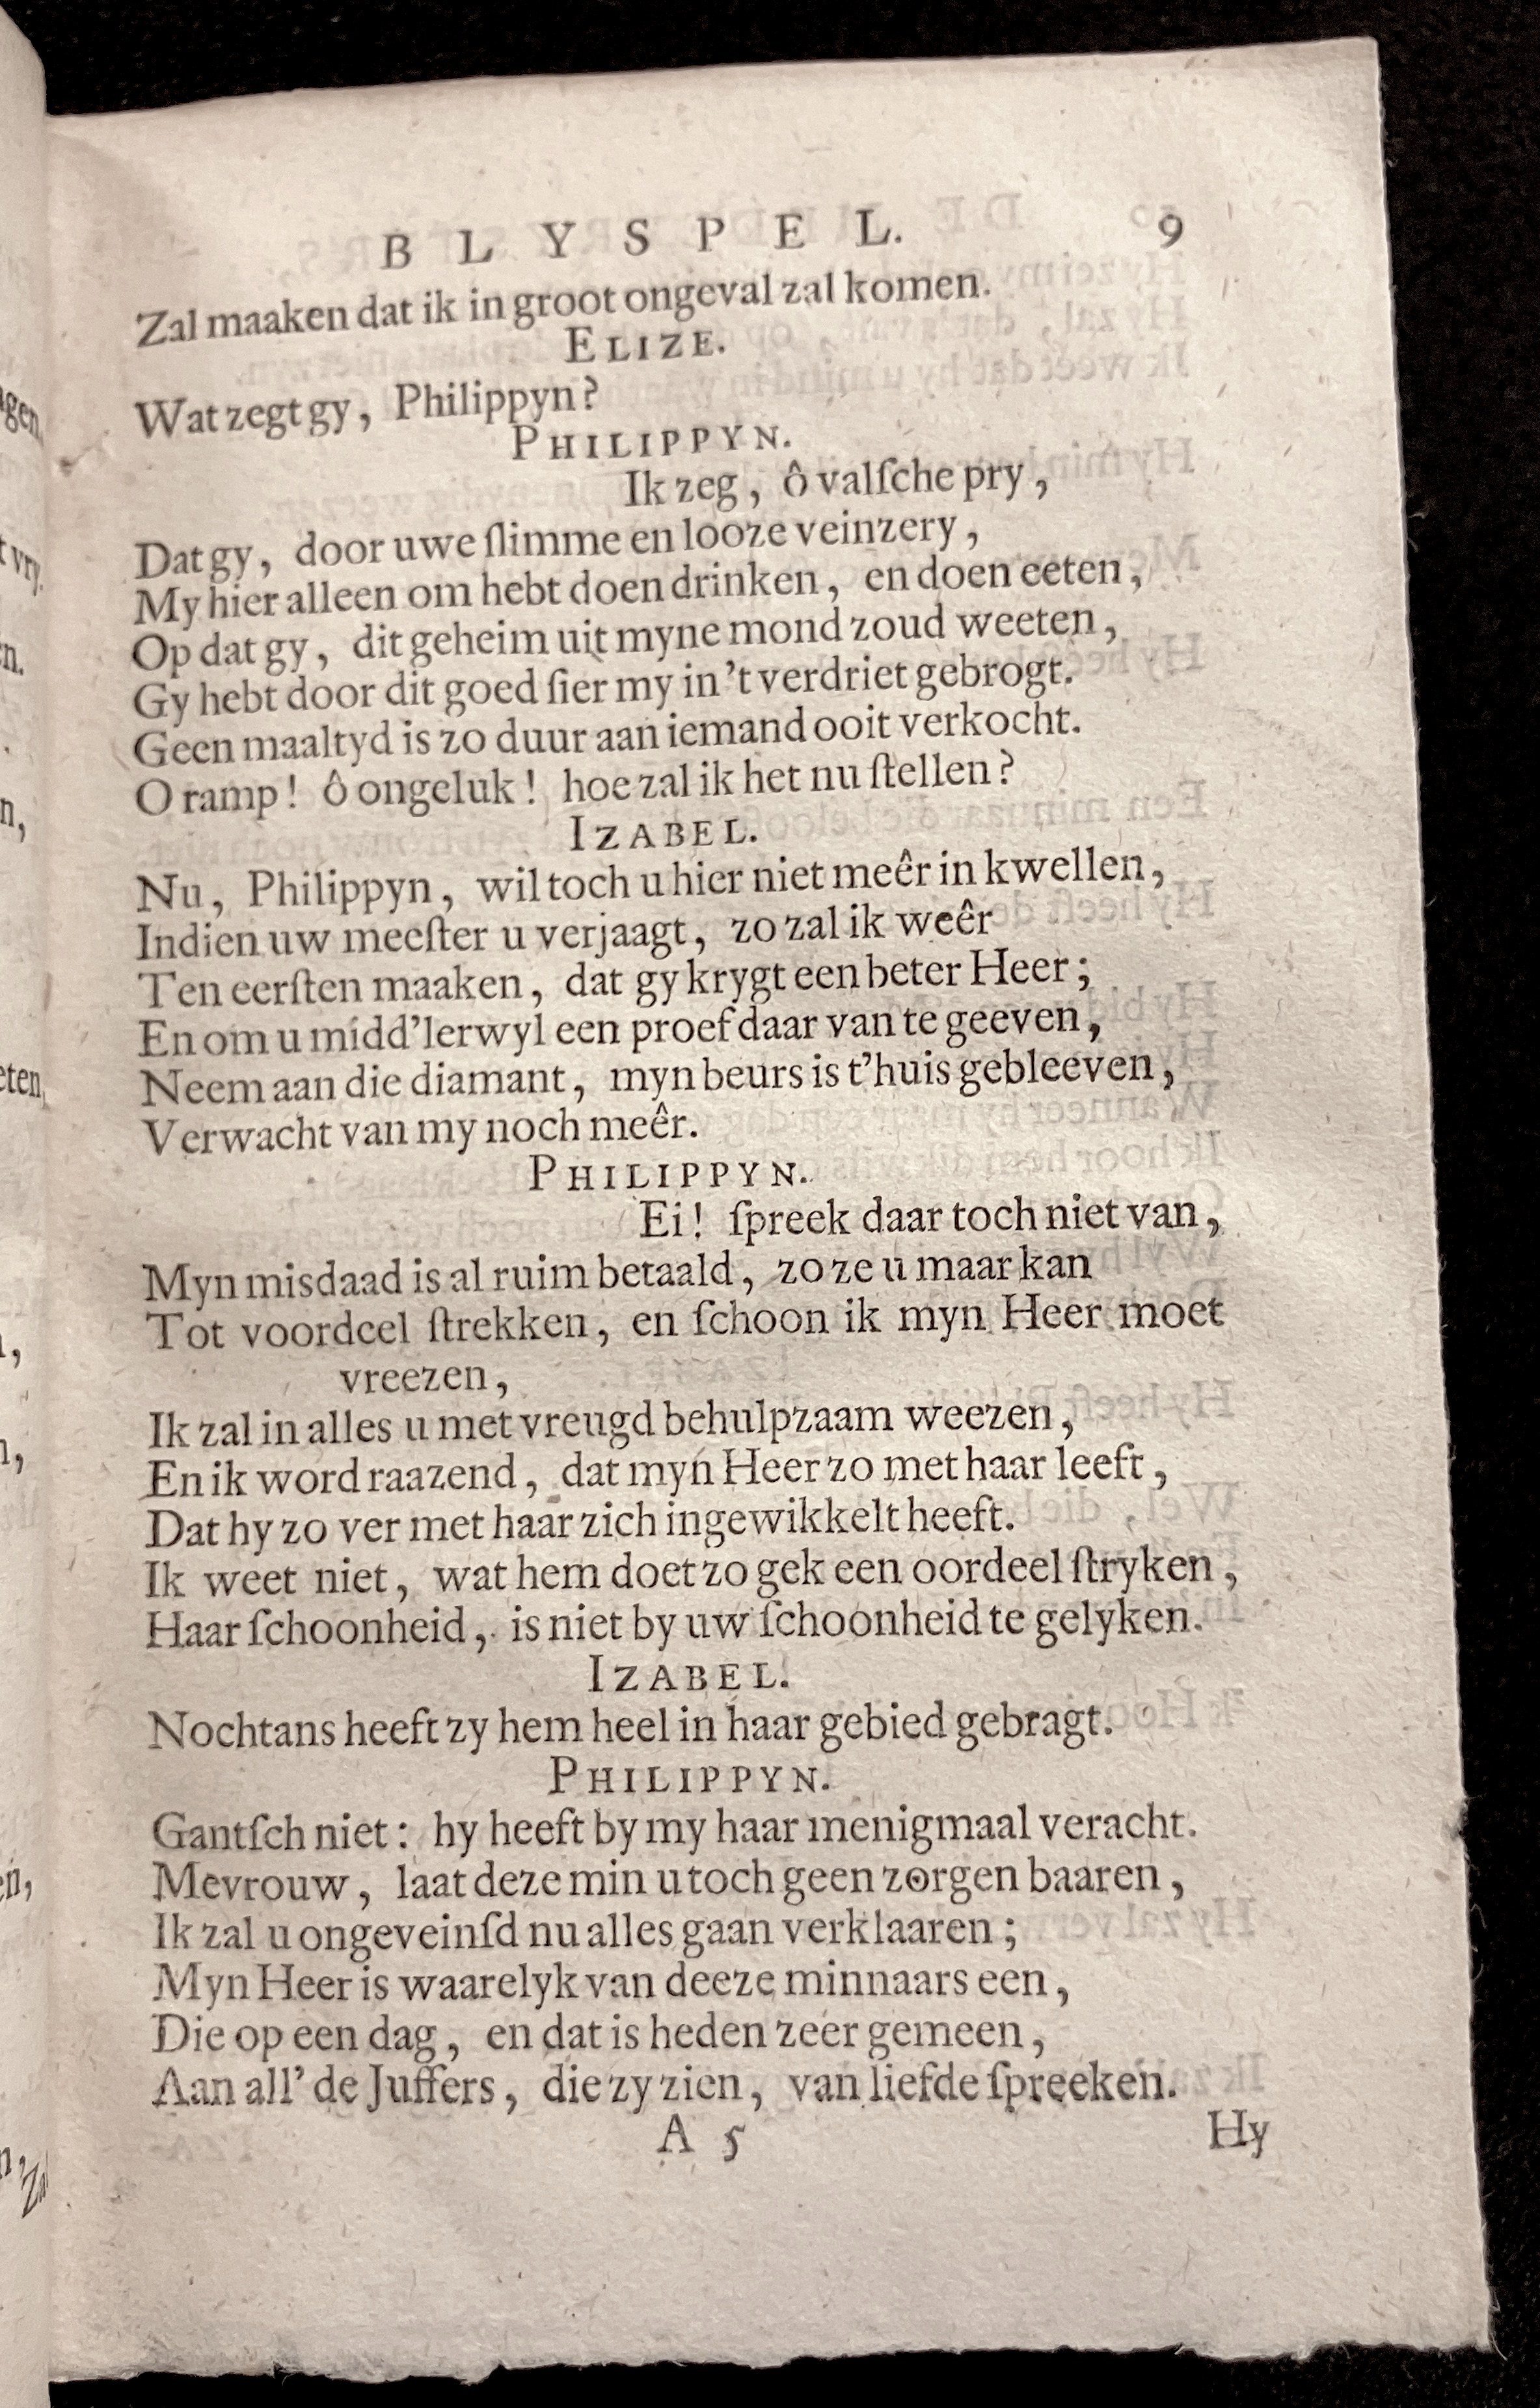 BLYSPEL. 9
Zal maaken dat ik in groot ongeval zal komen.
ELIZE.
Wat zegt gy, Philippyn?
PHILIPPYN.
Ik zeg, ô valſche pry,
Dat gy, door uwe ſlimme en looze veinzery,
My hier alleen om hebt doen drinken, en doen eeten,
Op dat gy, dit geheim uit myne mond zoud weeten,
Gy hebt door dit goed ſier my in 't verdriet gebrogt.
Geen maaltyd is zo duur aan iemand ooit verkocht.
O ramp! ô ongeluk! hoe zal ik het nu ſtellen?
IZABEL.
Nu, Philippyn, wil toch u hier niet meêr in kwellen,
Indien uw meeſter u verjaagt, zo zal ik weêr
Ten eerſten maaken, dat gy krygt een beter Heer;
En om u midd'lerwyl een proef daar van te geeven,
Neem aan die diamant, myn beurs is t'huis gebleeven,
Verwacht van my noch meêr.
PHILIPPYN.
Ei! ſpreek daar toch niet van,
Myn misdaad is al ruim betaald, zo ze u maar kan
Tot voordeel ſtrekken, en ſchoon ik myn Heer moet
vreezen,
Ik zal in alles u met vreugd behulpzaam weezen,
En ik word raazend, dat myn Heer zo met haar leeft,
Dat hy zo ver met haar zich ingewikkelt heeft.
Ik weet niet, wat hem doet zo gek een oordeel ſtryken,
Haar ſchoonheid, is niet by uw ſchoonheid te gelyken.
IZABEL.
Nochtans heeft zy hem heel in haar gebied gebragt.
PHILIPPYN.
Gantſch niet: hy heeft by my haar menigmaal veracht.
Mevrouw, laat deze min u toch geen zorgen baaren,
Ik zal u ongeveinſd nu alles gaan verklaaren;
Myn Heer is waarelyk van deeze minnaars een,
Die op een dag, en dat is heden zeer gemeen,
Aan all' de Juffers, die zy zien, van liefde ſpreeken.
A 5 Hy